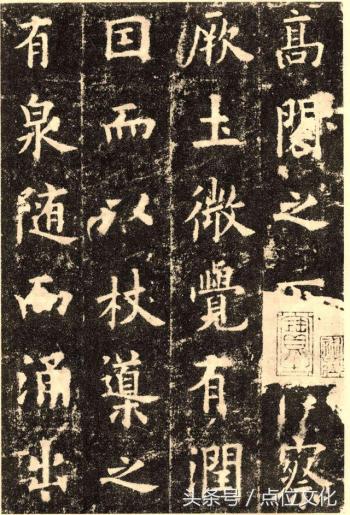 高閣之察
厥土微覺有潤
囙而以杖導之
有泉随而涌出
头条号 / 点位文化